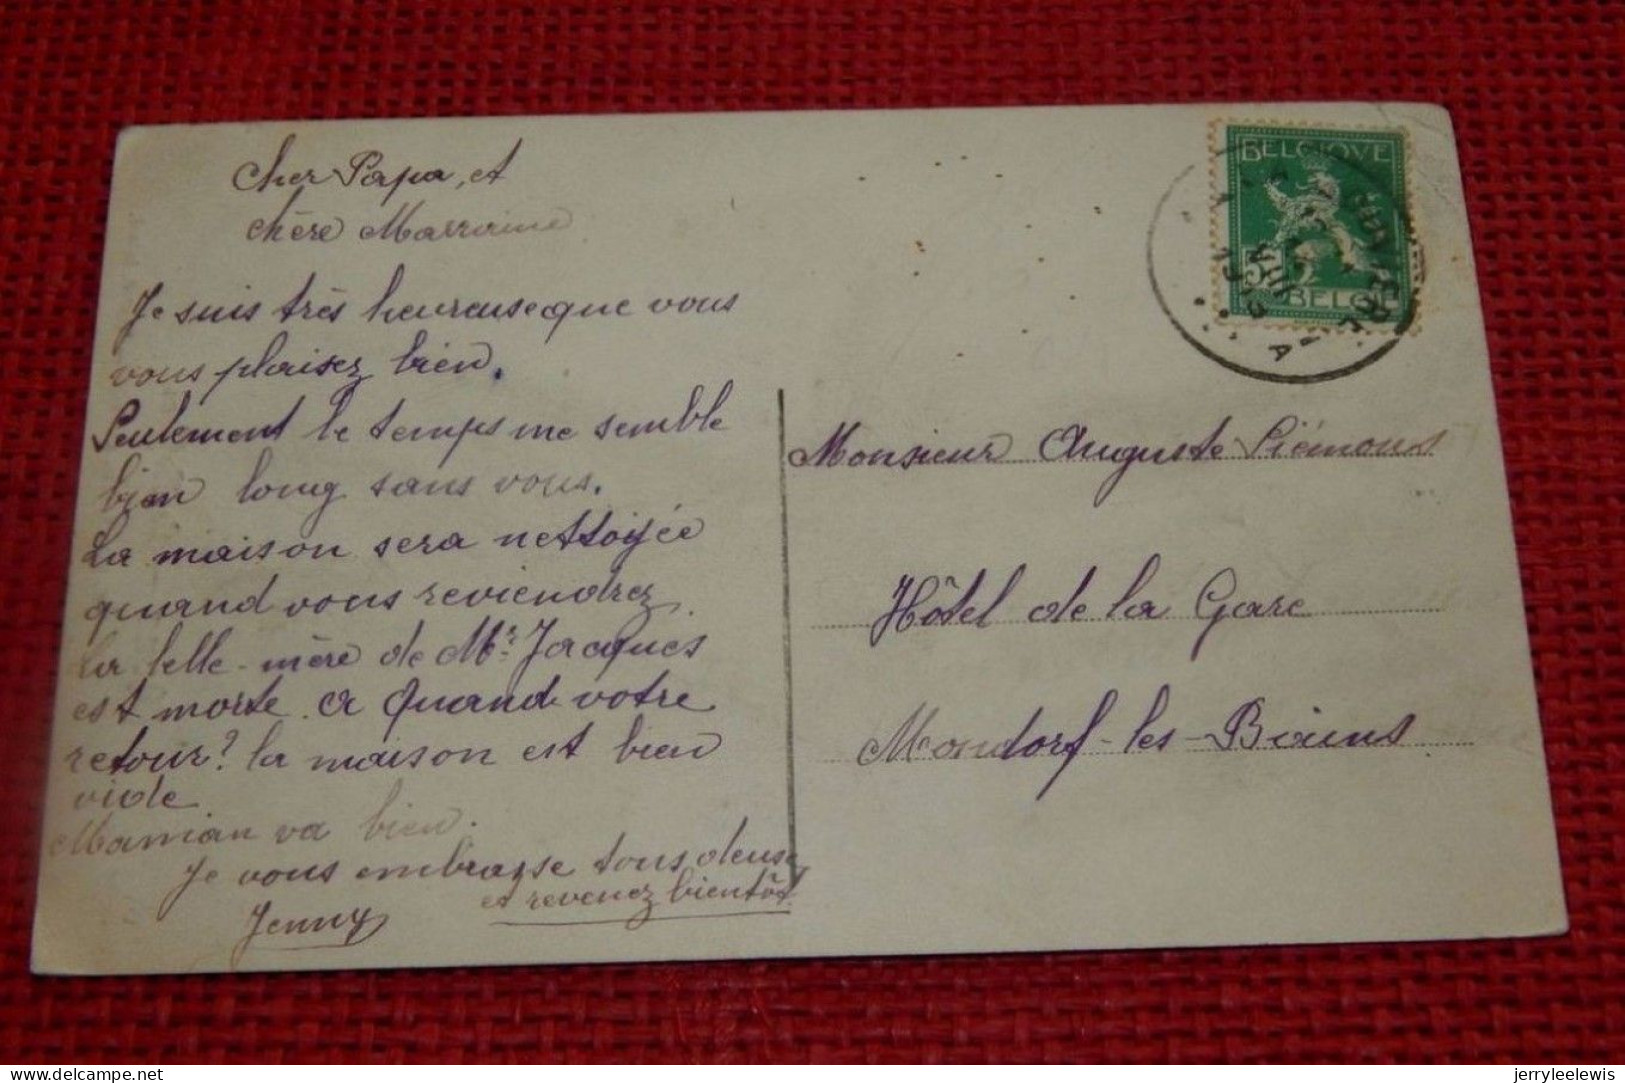 Cher Papa, et
chère Marraine
Je suis très heureuse que vous
vous plaisez bien.
Seulement le temps me semble
bien long sans vous.
La maison sera nettoyée
quand vous reviendrez
la belle-mère de Mr. Jacques
est morte. a Quand votre
retour? la maison est bien
vide
Maman va bien.
Je vous embrasse tous deux
et revenez bientôt
Jenny
BELGIQUE
5
BELGIË
Monsieur Auguste
Hôtel de la Gare
Mondorf-les-Bains
jerryleelewis